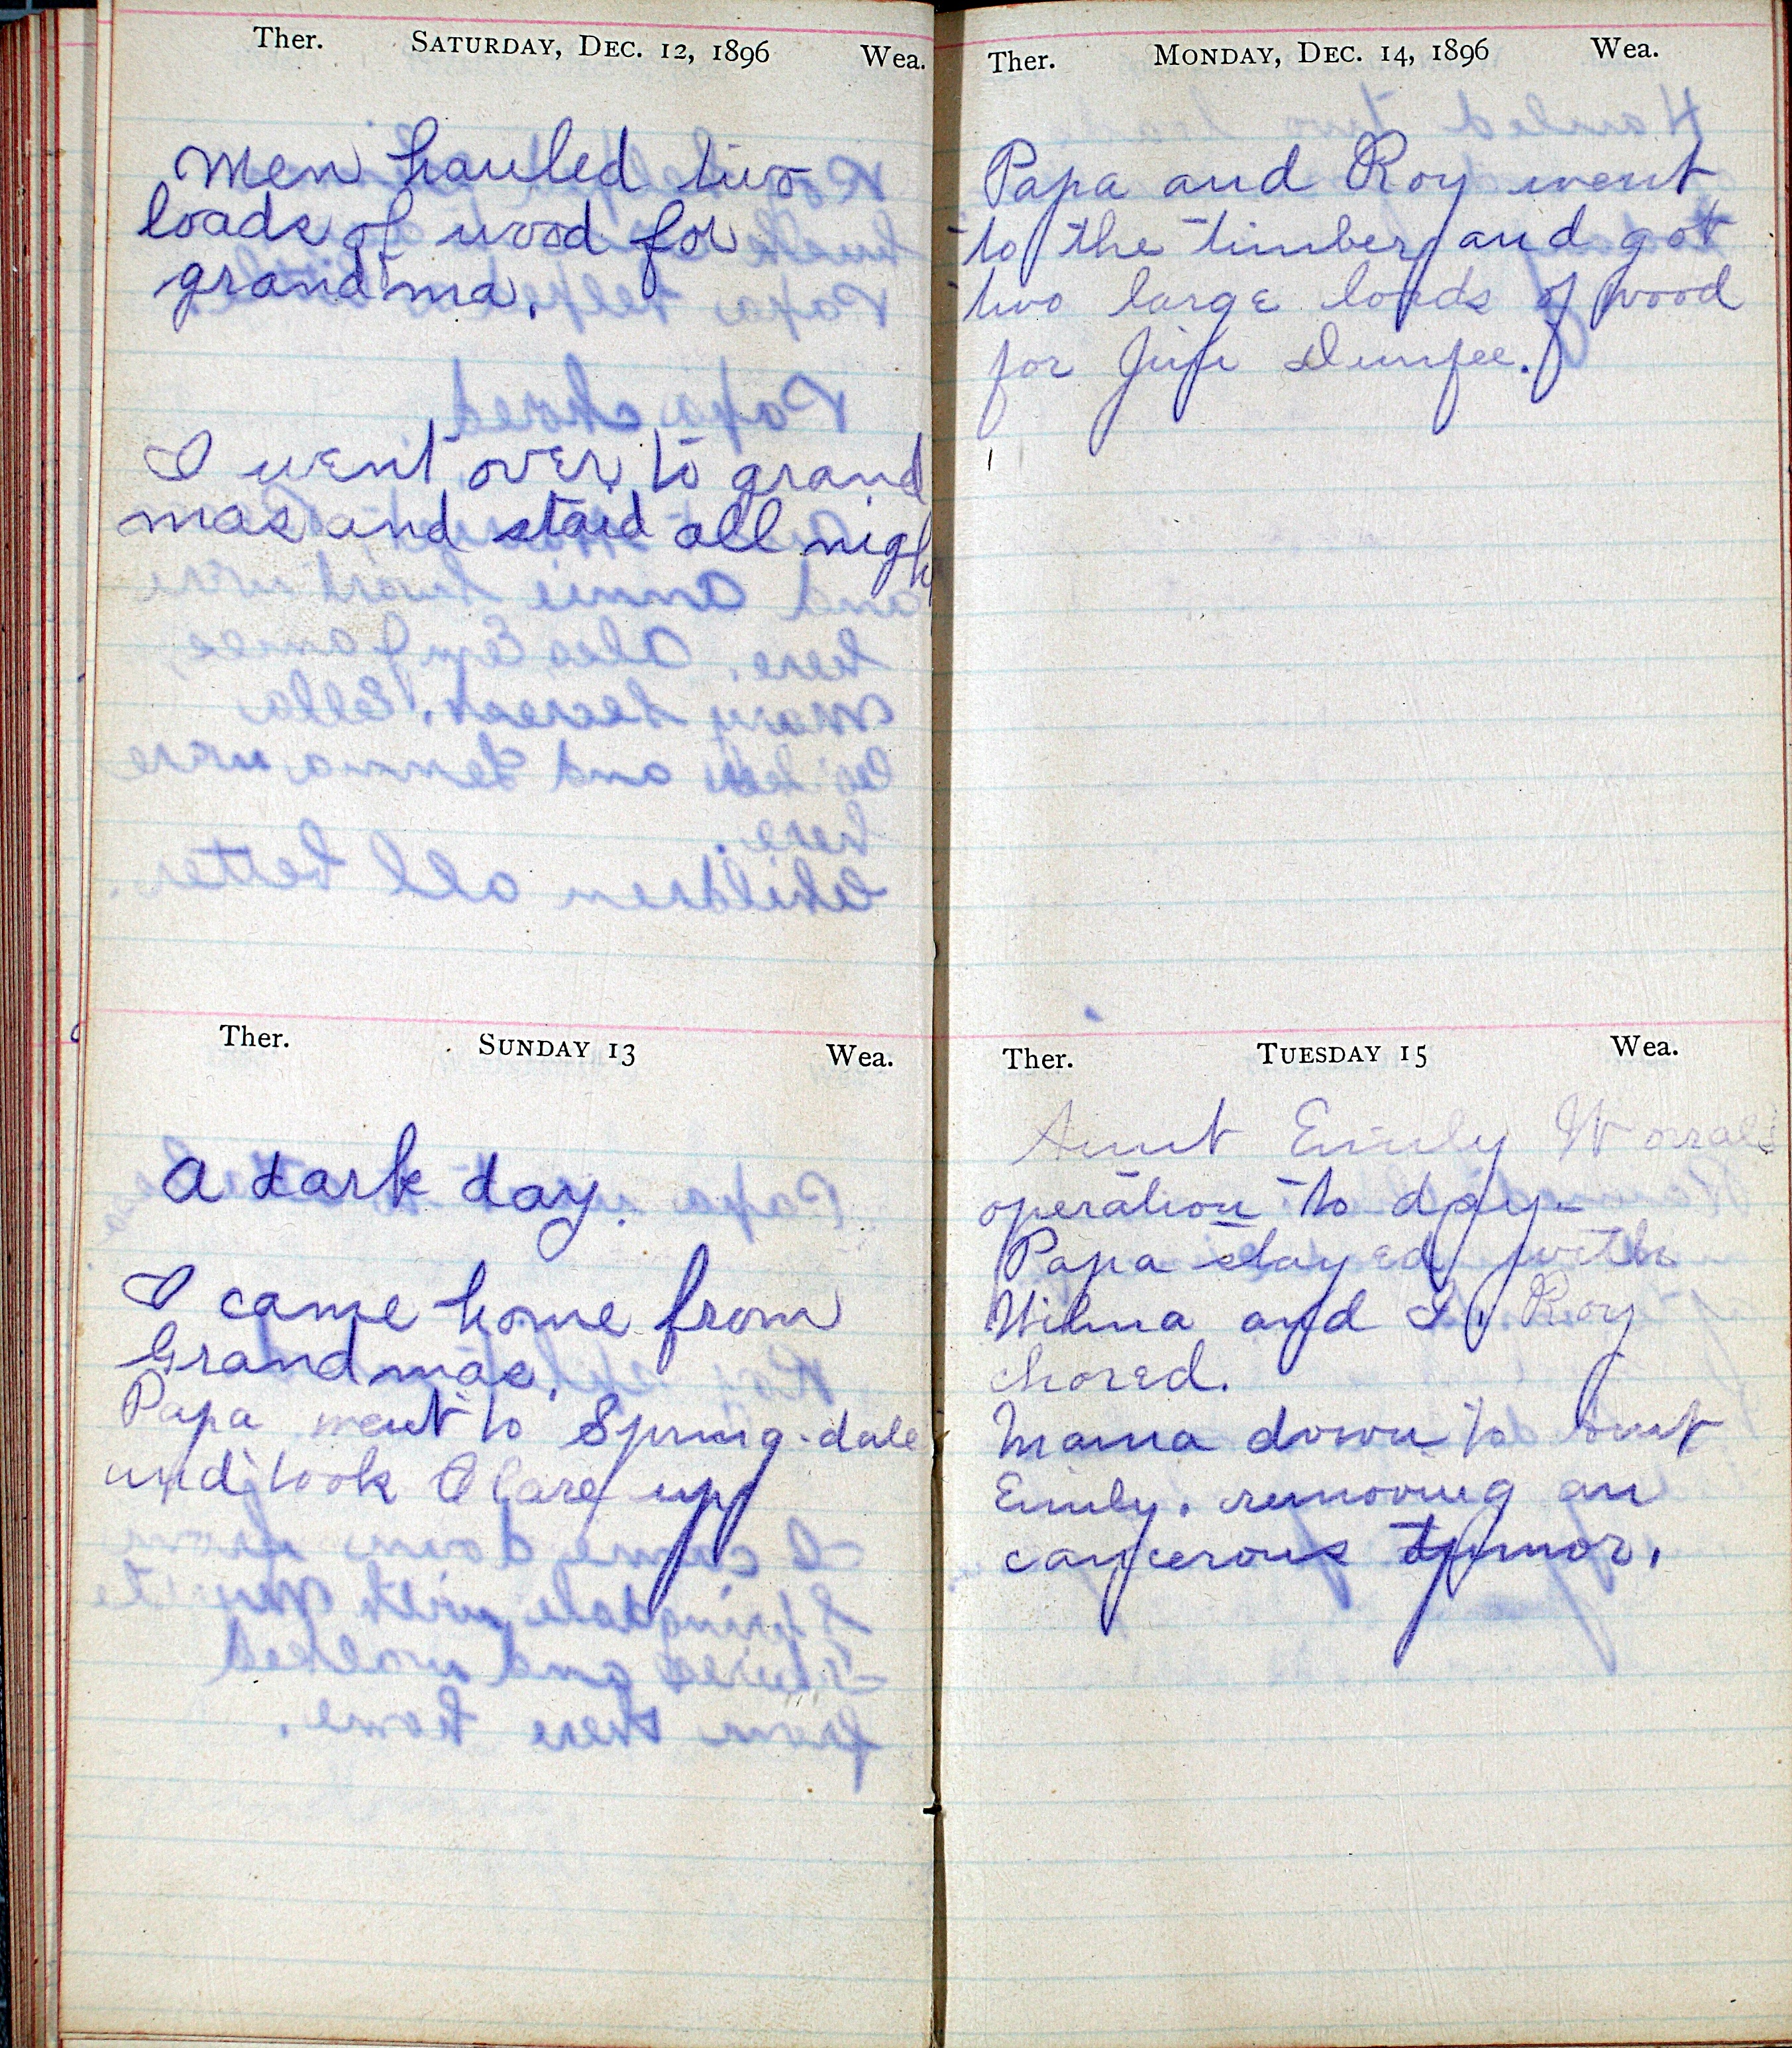 Ther. SATURDAY, DEC. 12, 1896 Wea.
Men hauled two
loads of wood for
grandma.
I went over to grand
mas and staid all nigh
Ther. SUNDAY 13 Wea.
A dark day.
I came home from
Grandmas.
Papa went to Spring-dale
and took Clare up
Ther. MONDAY, DEC. 14, 1896 Wea.
Papa and Roy went
to the timber and got
two large loads of wood
for Dunfee.
Ther. TUESDAY 15 Wea.
Aunt Emily Worrals
operation to day-
Papa stayed with
Wilma and I. Roy
chored.
Mama down to aunt
Emily. removing an
cancerous tumor.